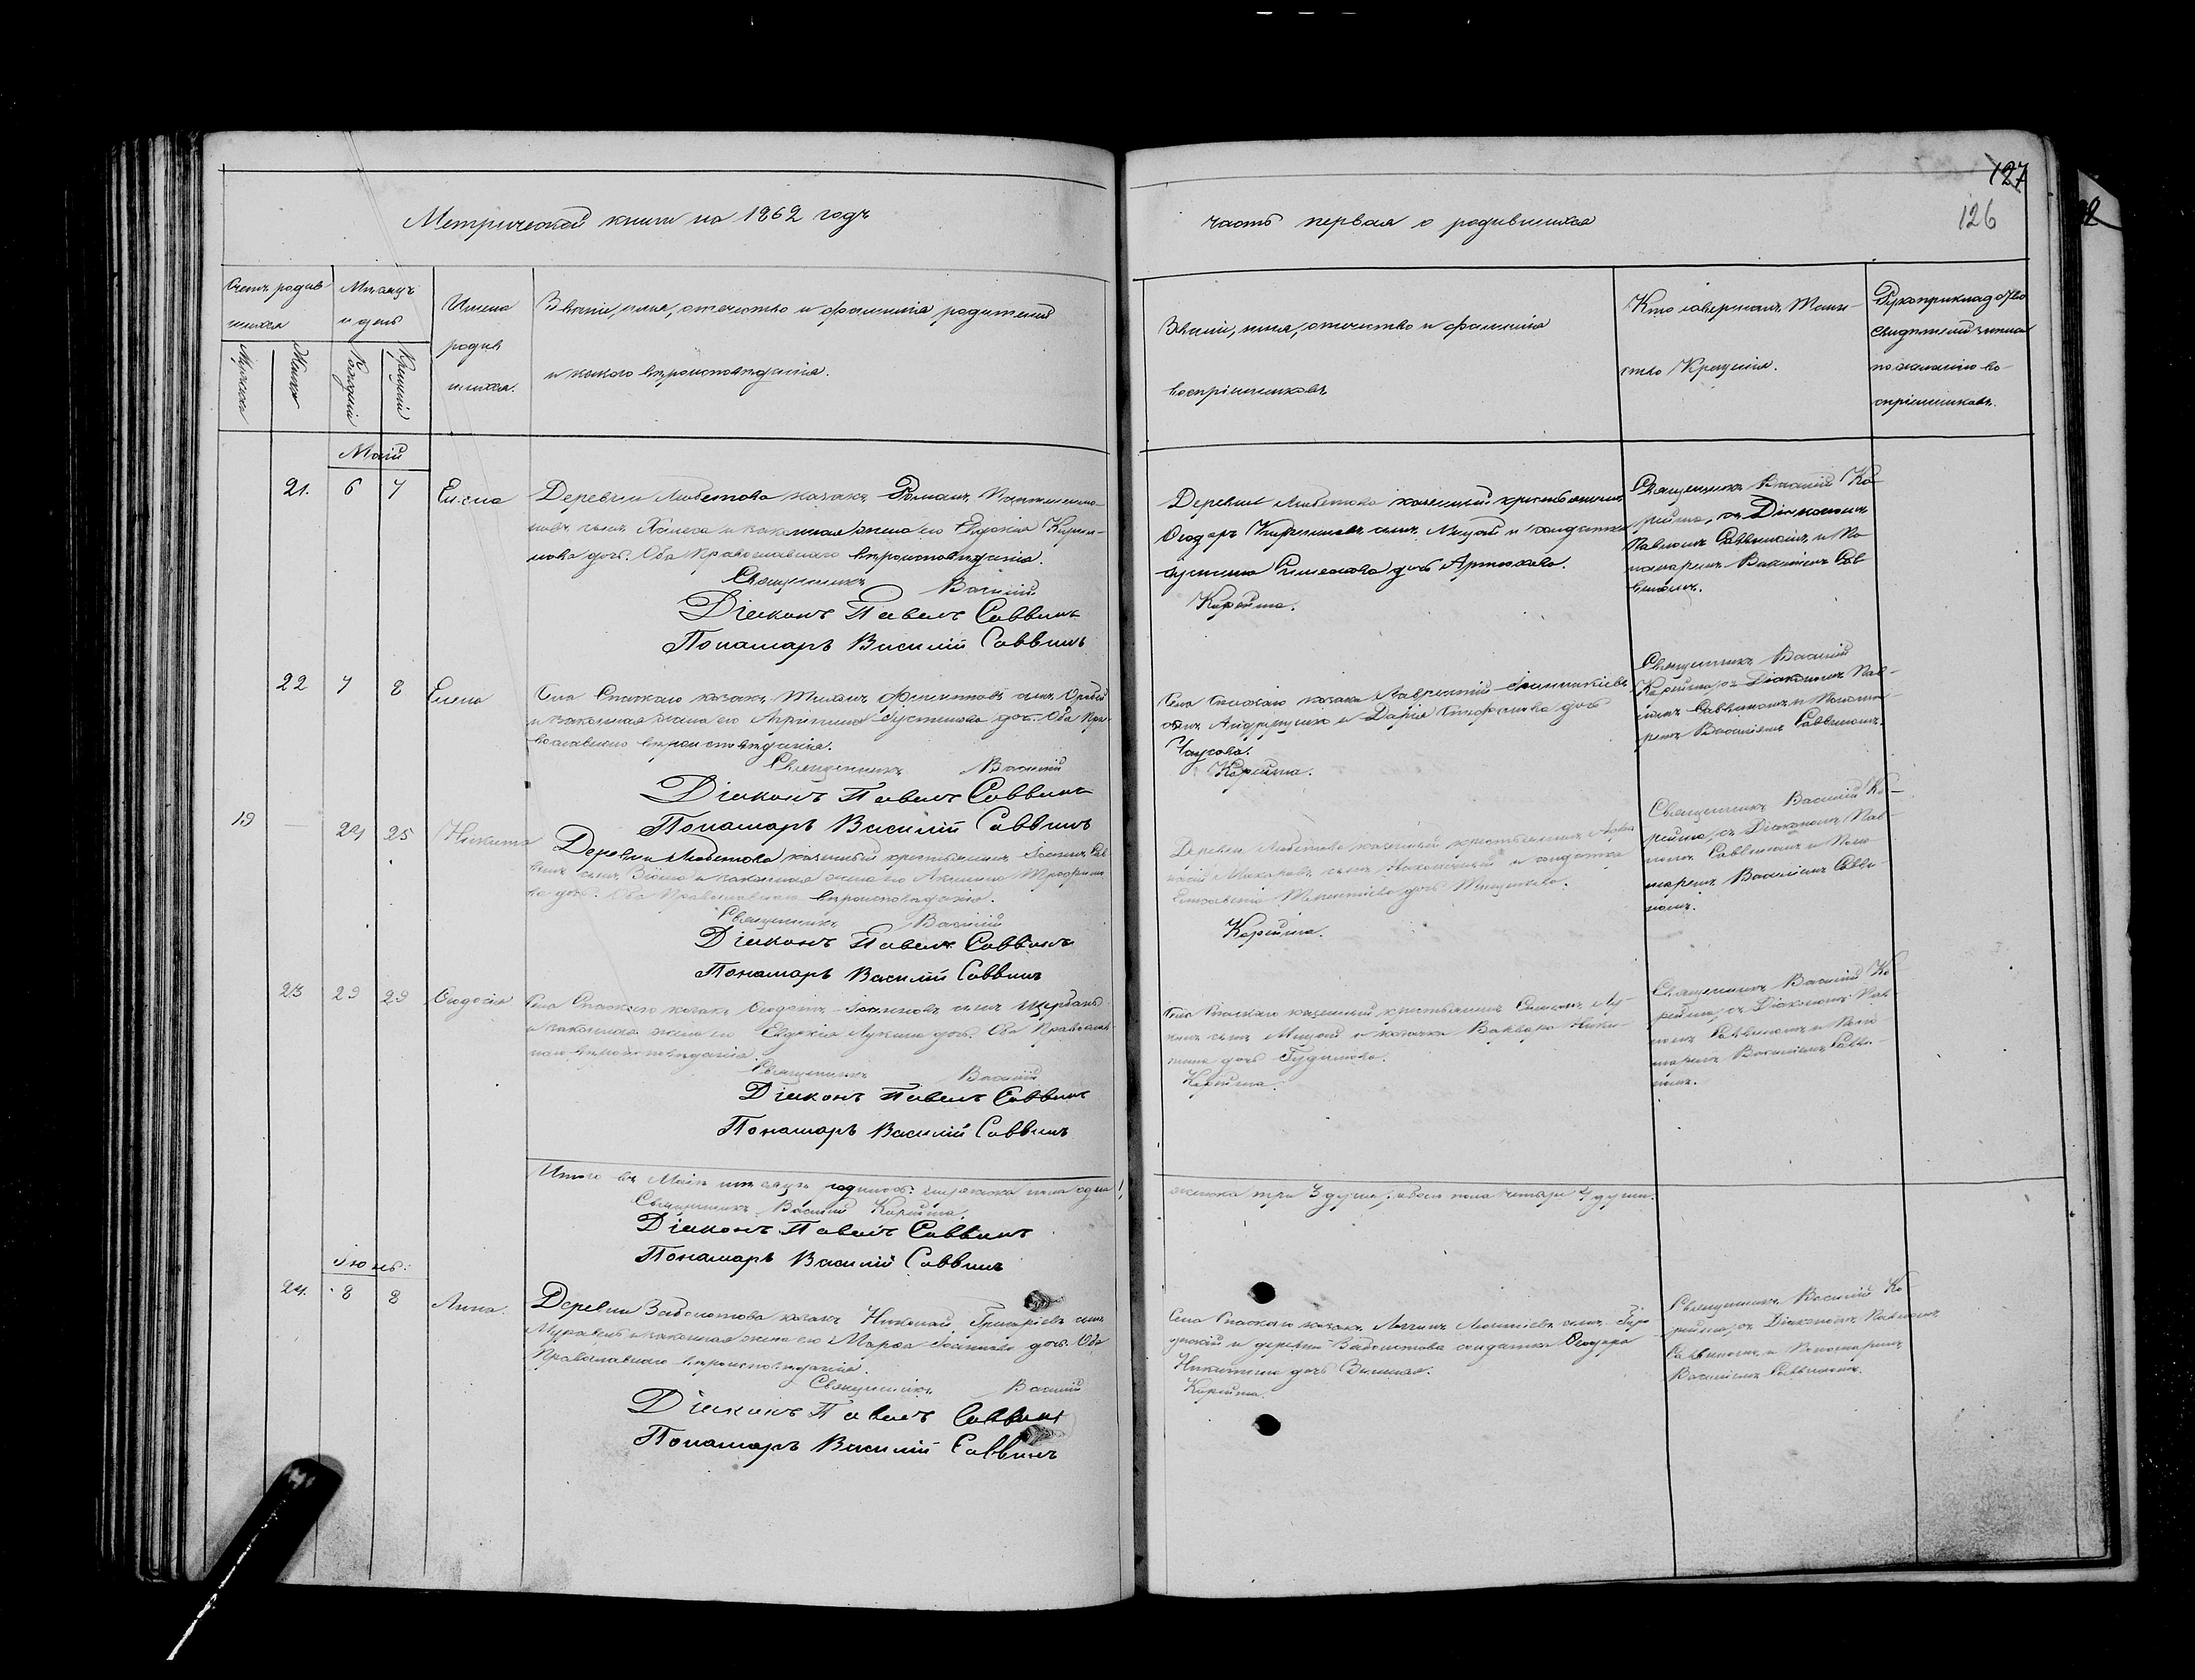 127
126
Метрической книги на 1862 годъ
часть первая о родившихся
Счетъ родив
шихся
Мужеска
Женска
Мѣсяцъ
и день
Рожденiя
Крещенiя
Имена
родив
шихся.
Званiе, имя, отчество и фамилiя родителей
и какого вѣроисповѣданiя.
Званiе, имя, отчество и фамилiя
воспрiемниковъ
Кто совершалъ Таин-
ство Крещенiя.
Рукоприкладство
свидѣтелей записи
по желанiю во-
спрiемниковъ.
Маiй
21. 6 7 Елена
Деревни Любитова казакъ Романъ
сынъ и законная жена его Евдокiя
нова дочь. Оба Православнаго вѣроисповѣданiя.
Священникъ Василiй
Дiаконъ Павелъ Саввинъ
Пономаръ Василiй Саввинъ
Деревни Любитова казенный крестьянинъ
Ѳеодоръ сынъ Мицай и солдатка
Симеонова дочь Артюхова.
Корейша.
Священникъ Василiй Ко
рейша, съ Дiакономъ
Павломъ Саввинымъ и По
номаремъ Василiемъ Сав
винымъ.
22 7 8 Елена
Села Спаскаго казакъ сынъ
и законная жена его Агрипина Iустинова дочь. Оба Пра-
вославнаго вѣроисповѣданiя.
Священникъ Василiй
Дiаконъ Павелъ Саввинъ
Пономаръ Василiй Саввинъ
Села Спаскаго казакъ Лаврентiй
сынъ и Дарiя Стефанова дочь
Чаусова.
Корейша.
Священникъ Василiй
Корейша съ Дiакономъ Пав-
ломъ Саввинымъ и Понома-
ремъ Василiемъ Саввинымъ.
19 — 24 25 Никита
Деревни Любитова казенный крестьянинъ Iоаннъ Сав-
винъ сынъ и законная жена его Акилина Трофимо-
ва дочь. Оба Православнаго вѣроисповѣданiя.
Священникъ Василiй
Дiаконъ Павелъ Саввинъ
Пономаръ Василiй Саввинъ
Деревни Любитова казенный крестьянинъ
Макаровъ сынъ и солдатка
Елисавета дочь Тищенкова.
Корейша.
Священникъ Василiй Ко-
рейша, съ Дiакономъ Пав-
ломъ Саввинымъ и Поно-
маремъ Василiемъ Савви-
нымъ.
23 29 29 Ѳеодосiя
Села Спаскаго казакъ Iоанновъ сынъ Щербакъ
и законная жена его Евдокiя Лукина дочь. Оба Православ-
наго вѣроисповѣданiя.
Священникъ Василiй
Дiаконъ Павелъ Саввинъ
Пономаръ Василiй Саввинъ
Села Спаскаго казенный крестьянинъ Симеонъ Лу-
кинъ сынъ Мицай и казачка Варвара Ники-
тина дочь Гудимова.
Корейша.
Священникъ Василiй Ко
рейша, съ Дiакономъ Пав-
ломъ Саввинымъ и Поно-
маремъ Василiемъ Савви-
нымъ.
Итого въ Маiѣ мѣсяцѣ родилось: мужеска пола одна 1,
женска три 3 души; обоего пола четыре 4 души.
Священникъ Василiй Корейша.
Дiаконъ Павелъ Саввинъ
Пономаръ Василiй Саввинъ
Iюнь:
24. 8 8 Анна.
Деревни Заболотова казакъ Николай Григорiевъ сынъ
Муравей и законная жена его Марѳа Iоаннова дочь. Оба
Православнаго вѣроисповѣданiя.
Священникъ Василiй
Дiаконъ Павелъ Саввинъ
Пономаръ Василiй Саввинъ
Села Спаскаго казакъ сынъ
и деревни Заболотова солдатка Ѳеодора
Никитина дочь
Корейша.
Священникъ Василiй Ко
рейша, съ Дiакономъ Павломъ
Саввинымъ и Пономаремъ
Василiемъ Саввинымъ.